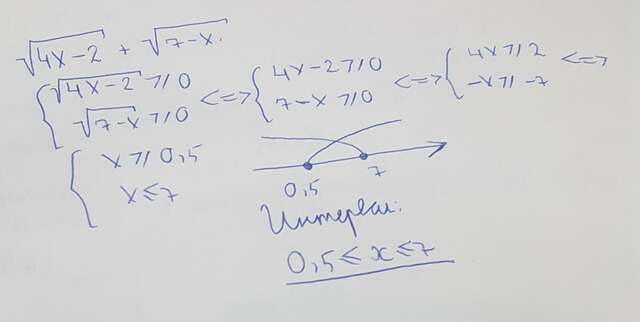 √4x-2 + √7-x.
{ √4x-2 ⩾ 0 <=> { 4x-2 ⩾ 0 <=> { 4x ⩾ 2 <=>
√7-x ⩾ 0 7-x ⩾ 0 -x ⩾ -7
{ x ⩾ 0,5
x ⩽ 7
0,5 7
Интервал:
0,5 ⩽ x ⩽ 7